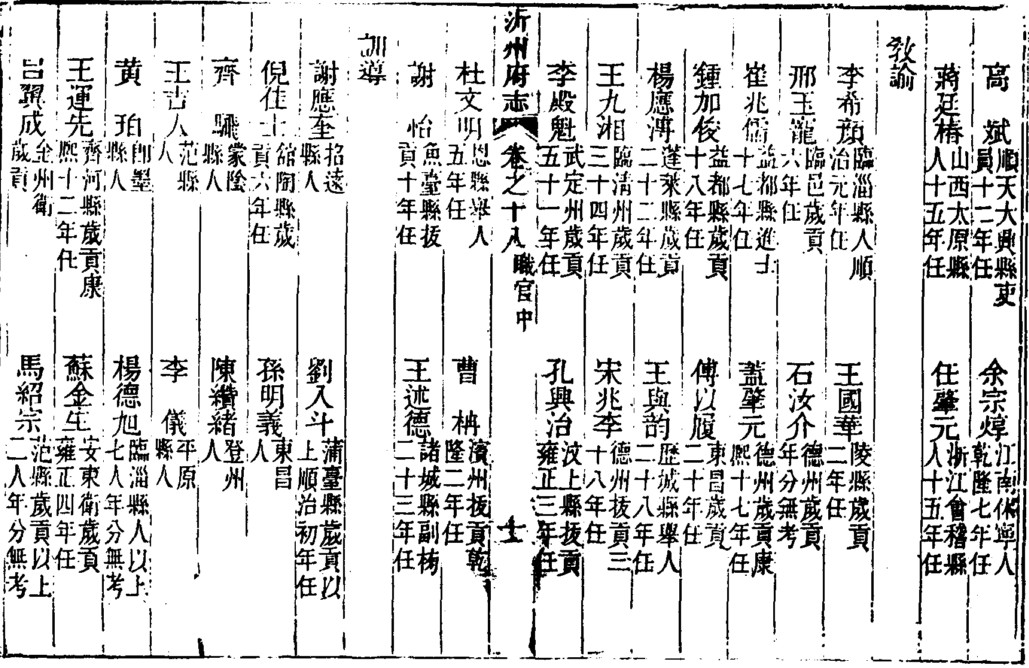 高斌 順天大興縣吏員十二年任
余宗焞 江南休寧人乾隆七年任
蔣廷椿 山西太原縣人十五年任
任肇元 浙江會稽縣人十五年任
教諭
李希顏 臨淄縣人順治元年任
王國華 陵縣歲貢二年任
邢玉龍 臨邑歲貢六年任
石汝介 德州歲貢年分無考
崔兆儒 益都縣進士十七年任
蓋肇元 德州歲貢康熙十七年任
鍾加俊 益都縣歲貢十八年任
傅以履 東昌歲貢二十年任
楊應溥 蓬萊縣歲貢二十二年任
王與韵 歷城縣舉人二十八年任
王九湘 臨清州歲貢三十四年任
宋兆李 德州拔貢三十八年任
李殿魁 武定州歲貢五十一年任
孔興治 汶上縣拔貢雍正三年任
沂州府志 卷之十八 職官中 十一
杜文明 恩縣舉人五年任
曹枏 濱州拔貢乾隆二年任
謝怡 魚臺縣拔貢十年任
王述德 諸城縣副榜二十三年任
訓導
謝應奎 招遠縣人
劉入斗 蒲臺縣歲貢以上順治初年任
倪佳士 舘陶縣歲貢六年任
孫明義 東昌人
齊驥 蒙陰縣人
陳纘緒 登州人
王吉人 范縣人
李儀 平原縣人
黄珀 即墨縣人
楊德旭 臨淄縣人以上七人年分無考
王運先 齊河縣歲貢康熙十二年任
蘇金生 安東衛歲貢雍正四年任
呂翼成 金州衛歲貢
馬紹宗 范縣歲貢以上二人年分無考